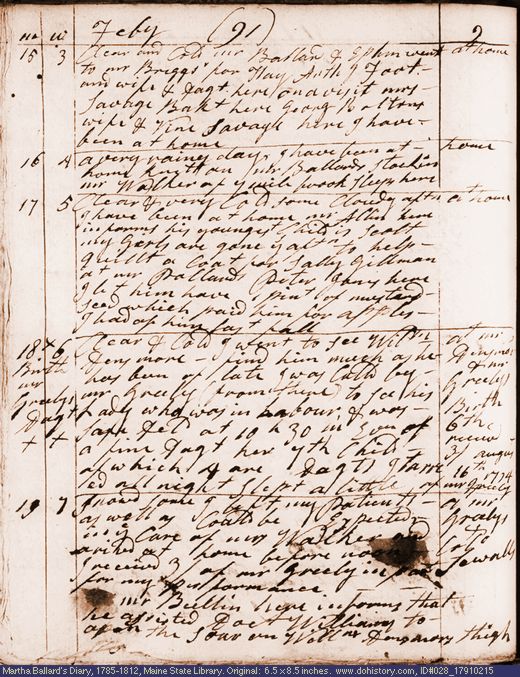 m w Feby (91) 2
15 3 Clear and Cold mr Ballard & Ephm went at home
to mr Briggs' for Hay Anth'y Foot
and wife & Dagt here on a visit mrs
Savage Bak't here Georg Boltons
wife & Fine Savage here I have
been at home
16 4 a very rainy day I have been at home
home knitt on mr Ballards stockin
mr Walker of
17 5 Clear & very Cold some Cloudy aftn at home
I have been at home mr Allin here
informs his youngest Child is Scott
my Gerls are gone to help
quillt a Coat for Sally Gillman
at mr Pollards Peter Jones here
I let him have 1 pint of mustard
seed which paid him for apples
I had of him last fall
18 6 Clear & Cold I went to see Wilm at mr
Birth Densmore find him much as he Dinsmore
mr has been of late I was Calld by & mr
Greelys mr Greely from there to see his Greelys
Dagt Lady who was in Labour & was Birth
+ + safe Del'd at 10 h 30 m Evn of 6th
a fine Dagt her 7th Child receiv'd
of which 4 are Dagts I tarried
all night Slept a little
19 7 found some I left my patients at mr
as well as Could be Expected Greelys
in ye Care of mrs
arived at home before noon
I received 3/ of mr Greely in Sewalls
for my performance
mr Bullin here informs that
he assisted Doct Williams to
open the Soar on Willm Densmors thigh
Martha Ballard's Diary, 1785-1812, Maine State Library. Original: 6.5 x 8.5 inches. www.dohistory.com, ID#028_17910215